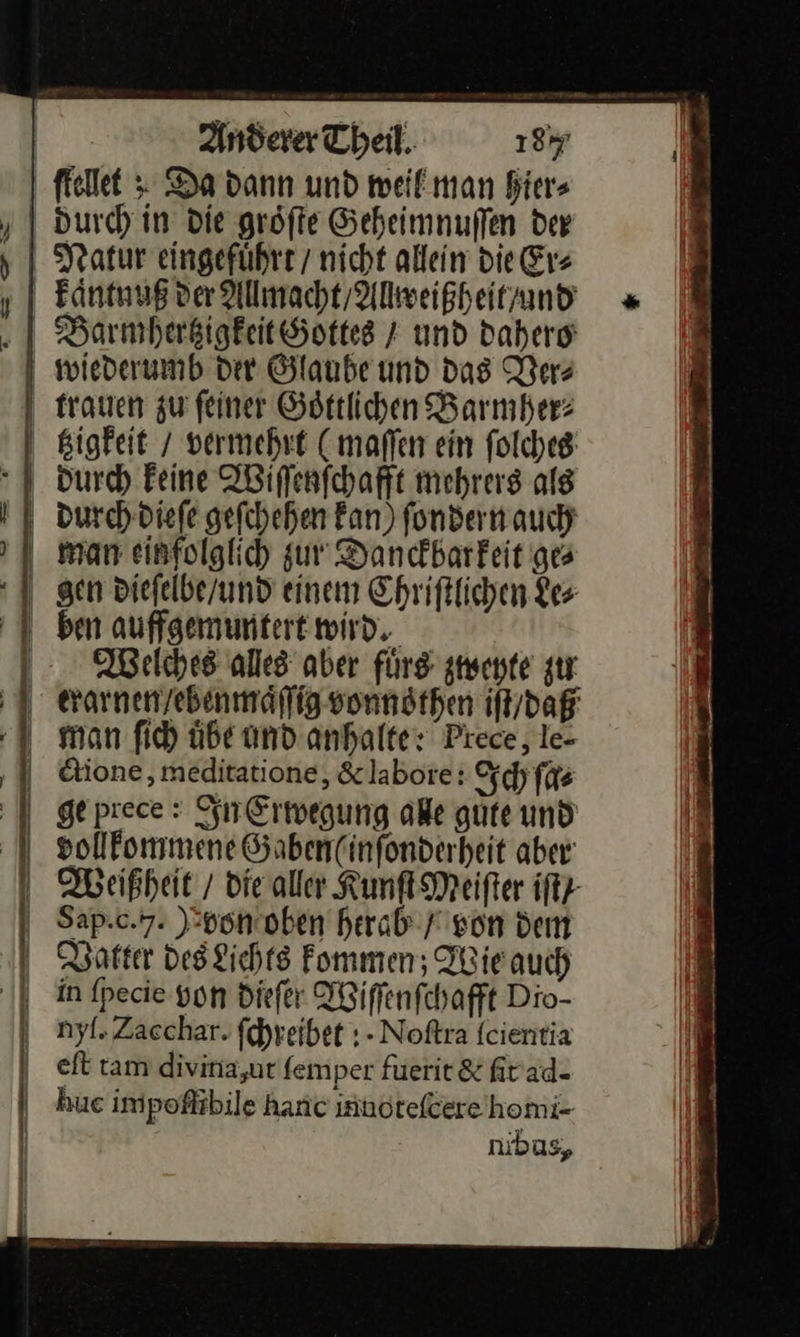 Anderer Theil. 187
ſtellet; Da dann und weil man hier⸗
durch in die groͤſte Geheimnuſſen der
Natur eingefuͤhrt / nicht allein die Er⸗
kaͤntnuß der Allmacht / Allweißheit / und
Barmhertzigkeit Gottes / und dahero
wiederumb der Glaube und das Ver⸗
trauen zu ſeiner Goͤttlichen Barmher⸗
tzigkeit / vermehrt (maſſen ein ſolches
durch keine Wiſſenſchafft mehrers als
durch dieſe geſchehen kan) ſondern auch
man einfolglich zur Danckbarkeit ge⸗
gen dieſelbe / und einem Chriſtlichen Le⸗
ben auffgemuntert wird.
Welches alles aber fuͤrs zweyte zu
erarnen / ebenmaͤſſig vonnoͤthen iſt / daß
man ſich uͤbe und anhalte: Prece, le-
ctione, meditatione, & labore: Ich ſa⸗
ge prece: In Erwegung alle gute und
vollkommene Gaben (inſonderheit aber
Weißheit / die aller Kunſt Meiſter iſt /
Sap.c.7.) von oben herab / von dem
Vatter des Lichts kommen; Wie auch
in ſpecie von dieſer Wiſſenſchafft Dio-
nyſ. Zacchar. ſchreibet: Noſtra ſcientia
eſt tam divina, ut ſemper fuerit & ſit ad-
huc impoſſibile hanc innoteſcere homi-
nibus,